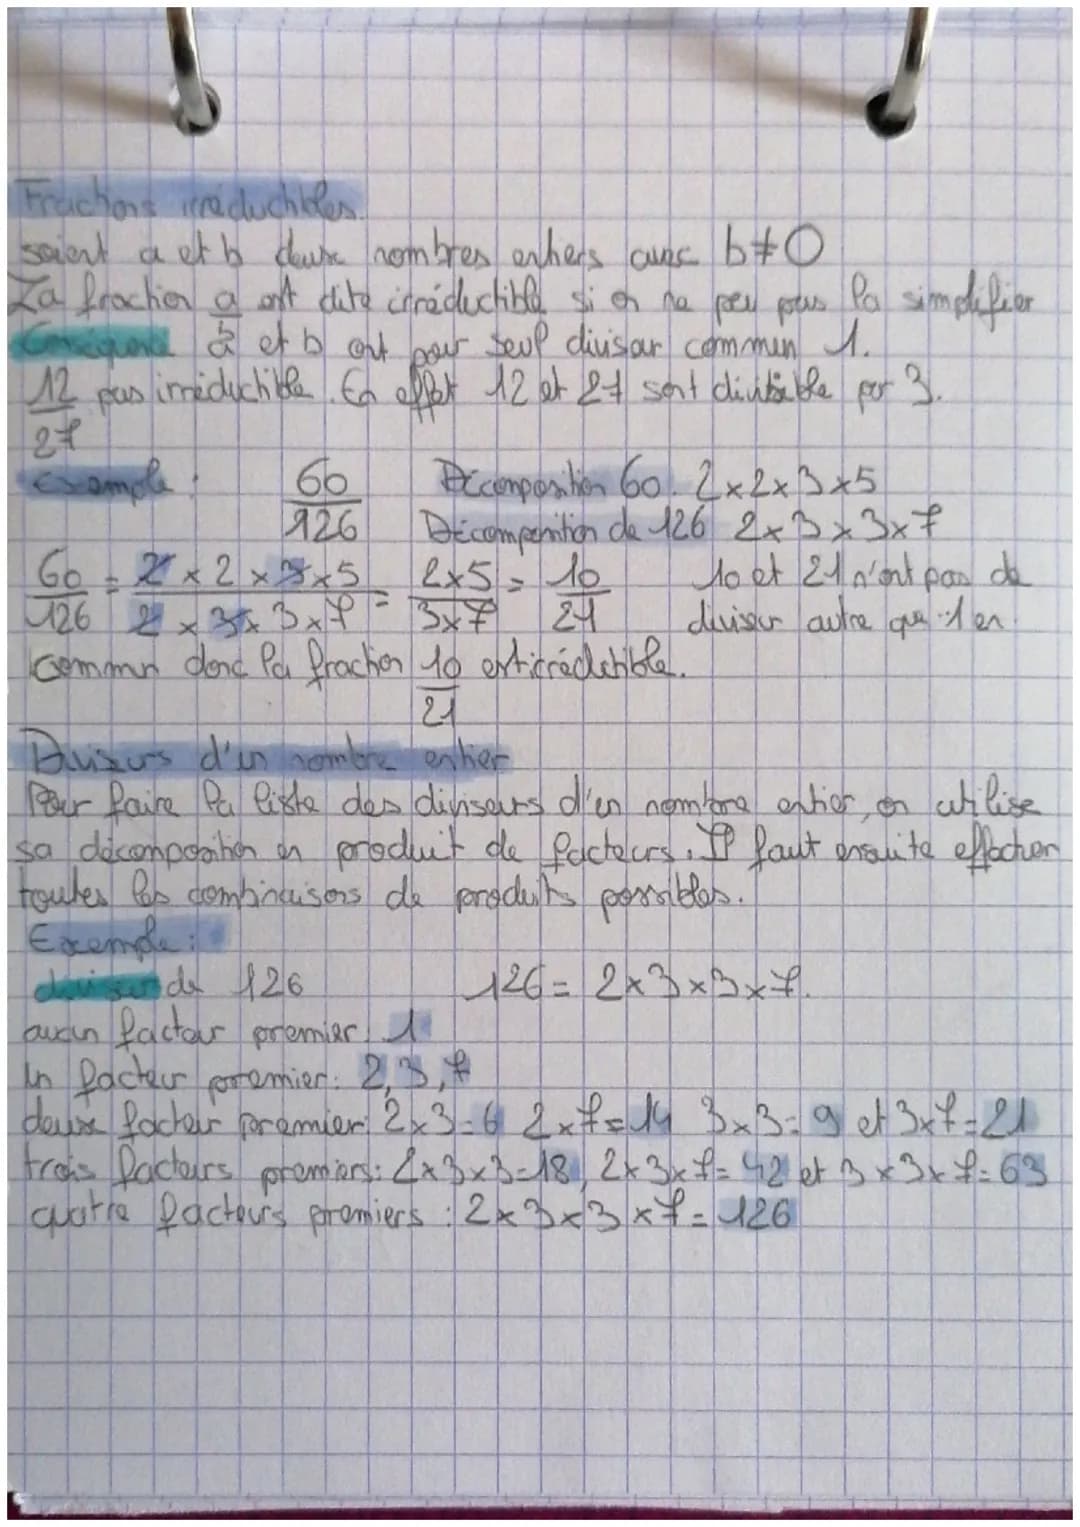 Fractions irréductibles.
soient a et b deux nombres entiers avec b≠0
La fraction a/b est dite irréductible si on ne peu pas la simplifier
Conséquence a et b ont pour seul diviseur commun 1.
12/27 pas irréductible. En effet 12 et 27 sont divisible par 3.
Exemple : 60/126 Décomposition 60. 2x2x3x5
Décomposition de 126 2x3x3x7
60/126 = 2x2x3x5/2x3x3x7 = 2x5/3x7 = 10/21 10 et 21 n'ont pas de
diviseur autre que 1 en
commun donc la fraction 10/21 est irréductible.
Diviseurs d'un nombre entier
Pour faire la liste des diviseurs d'un nombre entier, on utilise
sa décomposition en produit de facteurs. Il faut ensuite effectuer
toutes les combinaisons de produits possibles.
Exemple :
diviseur de 126 126 = 2x3x3x7.
aucun facteur premier : 1
un facteur premier : 2, 3, 7
deux facteur premier : 2x3=6 2x7=14 3x3=9 et 3x7=21
trois facteurs premiers : 2x3x3=18, 2x3x7=42 et 3x3x7=63
quatre facteurs premiers : 2x3x3x7=126